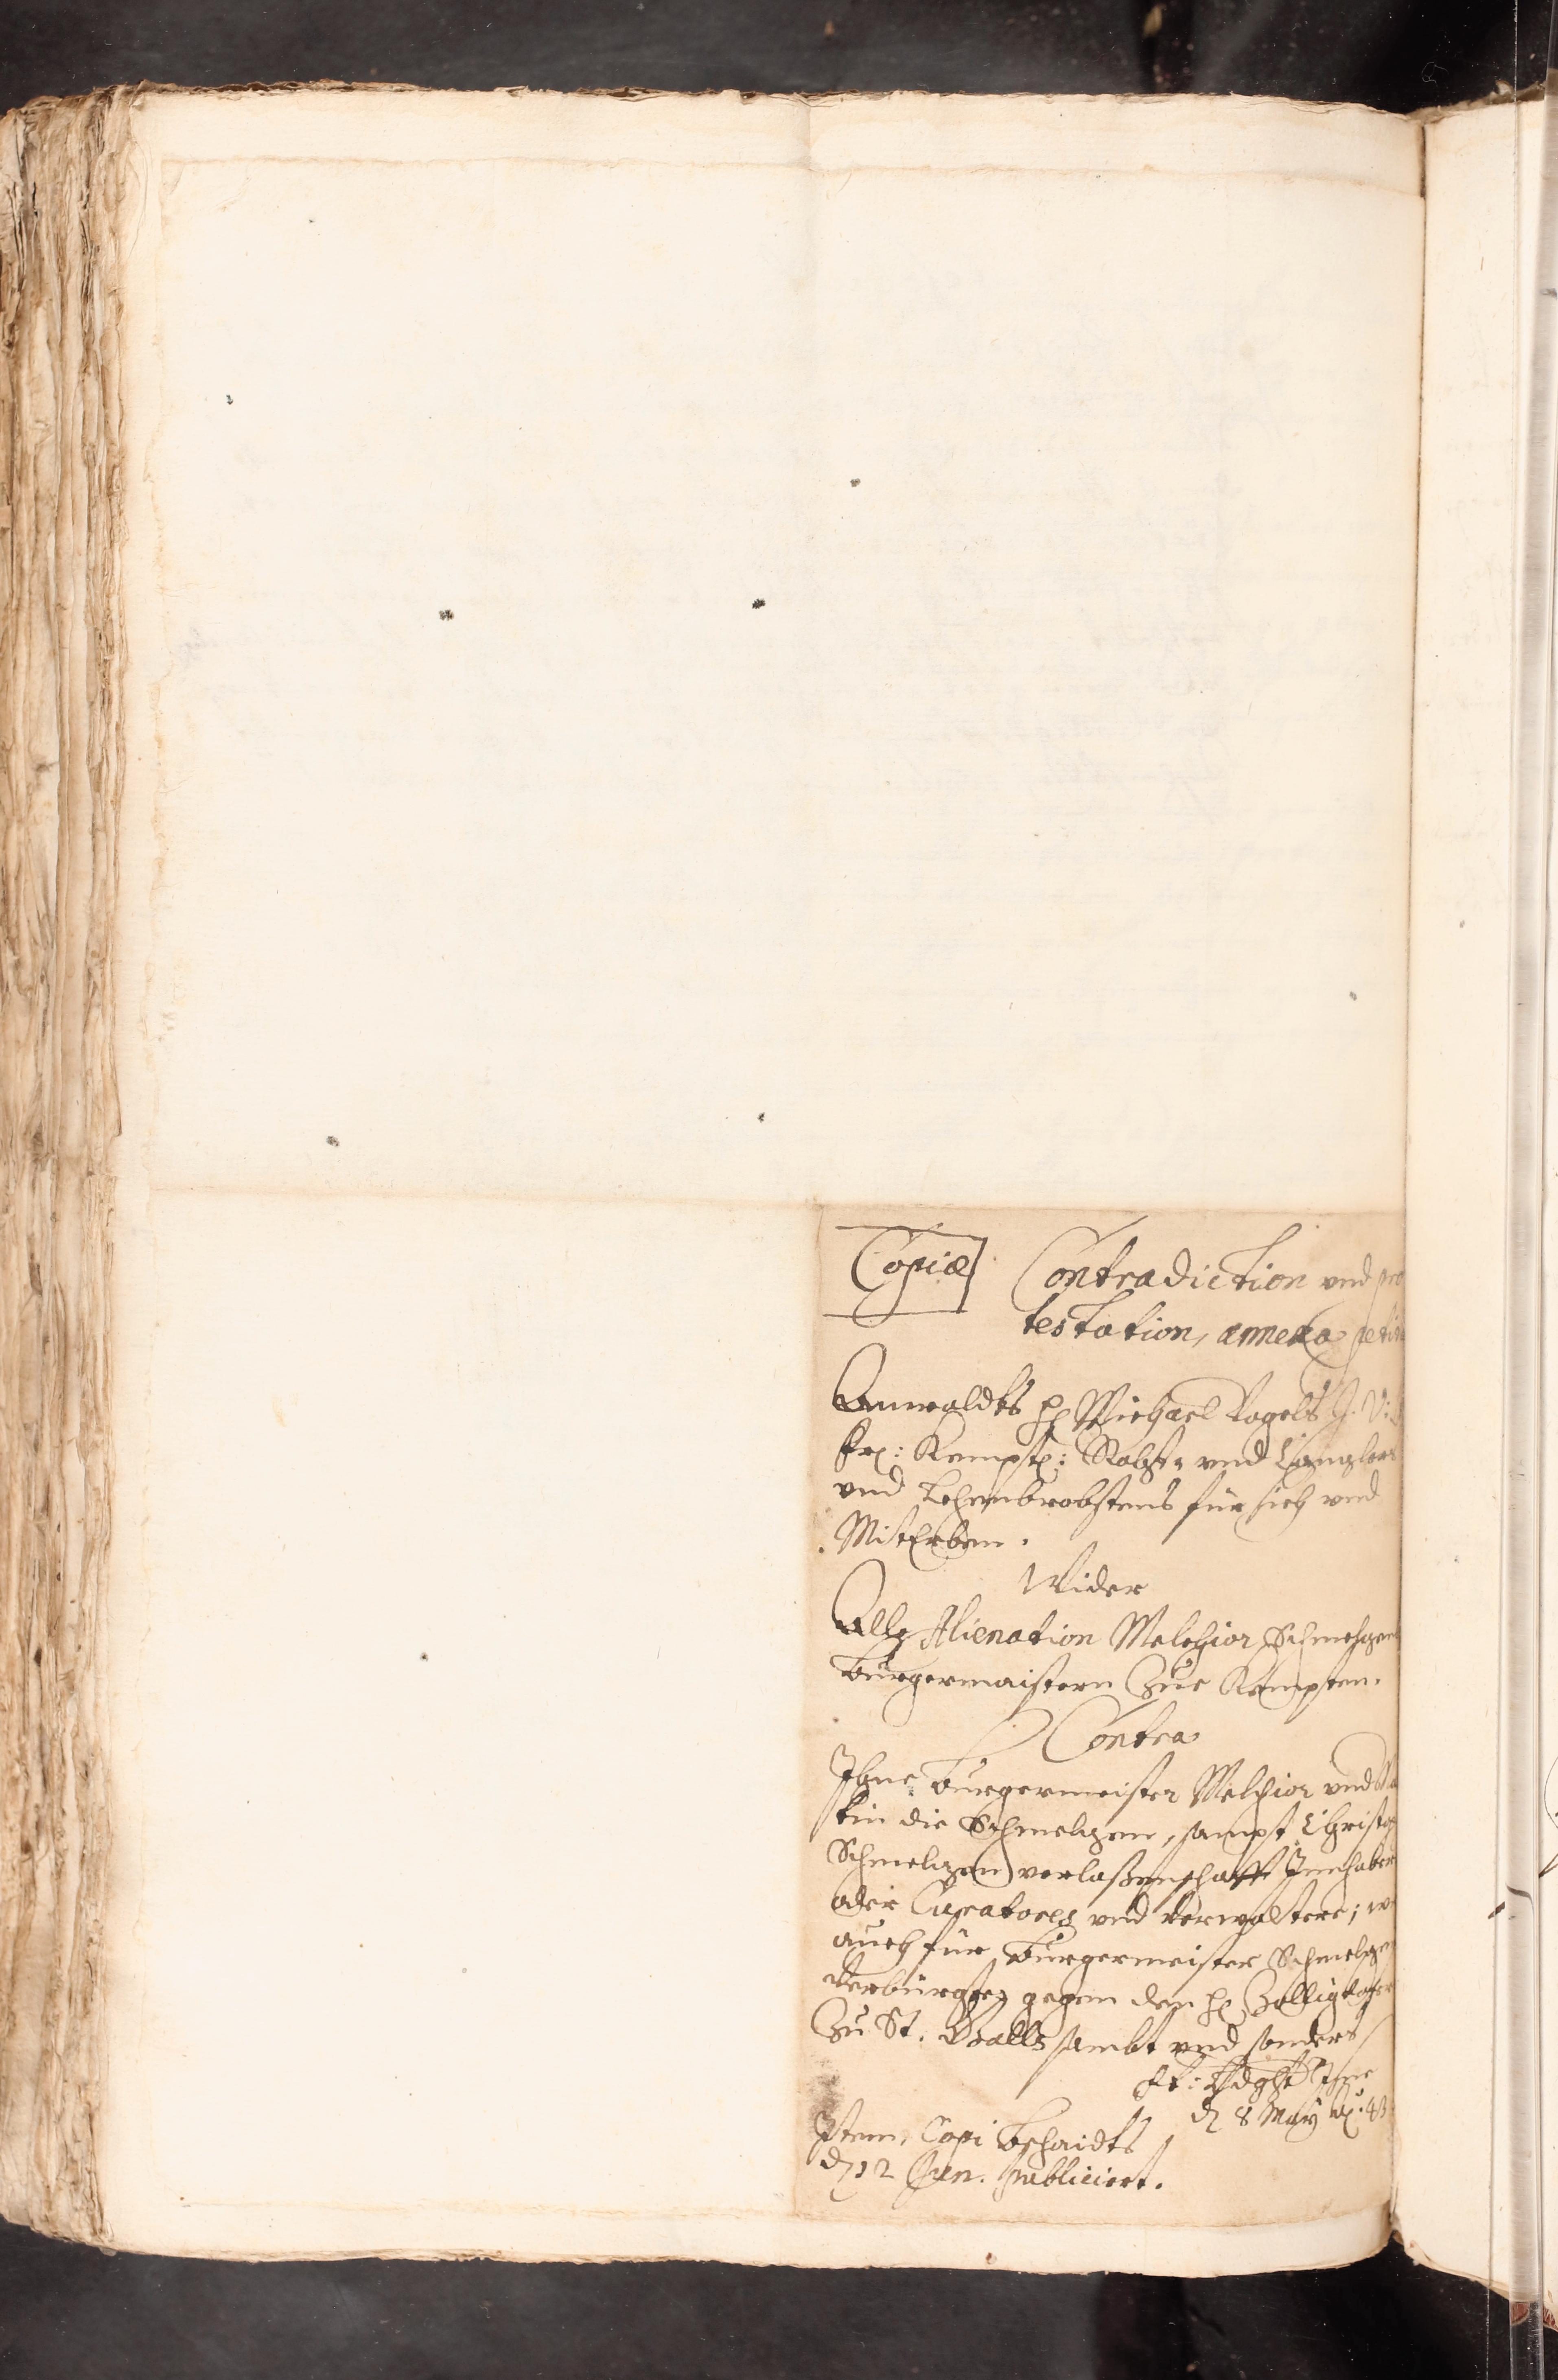 Copiæ Contradiction vnd pro
testation, annexa petiti
Anwaldts H Michael Vogels J. V:
frl: Kempt: Rahts vnd Canzlers
vnd Lehenbrobstens für sich vnd
MitErben.
Wider
Alle Alienation Melchior Schmelzen
Burgermaistern Zue Kempten.
Contra
Ihne Burgermeister Melchior vnd
tin die Schmelzen, sampt Christo
Schmelzen verlaßenschafft Innhaber
oder Curatores vnd Verwaltere; w
auch für Burgermeister Schmelzen
Verbürgte gegen den H Zollig
Zu St. Gall sambt vnd sonders
d 8 May 43
Item, Copi Bschaidts
d 12 Jun. publiciert.